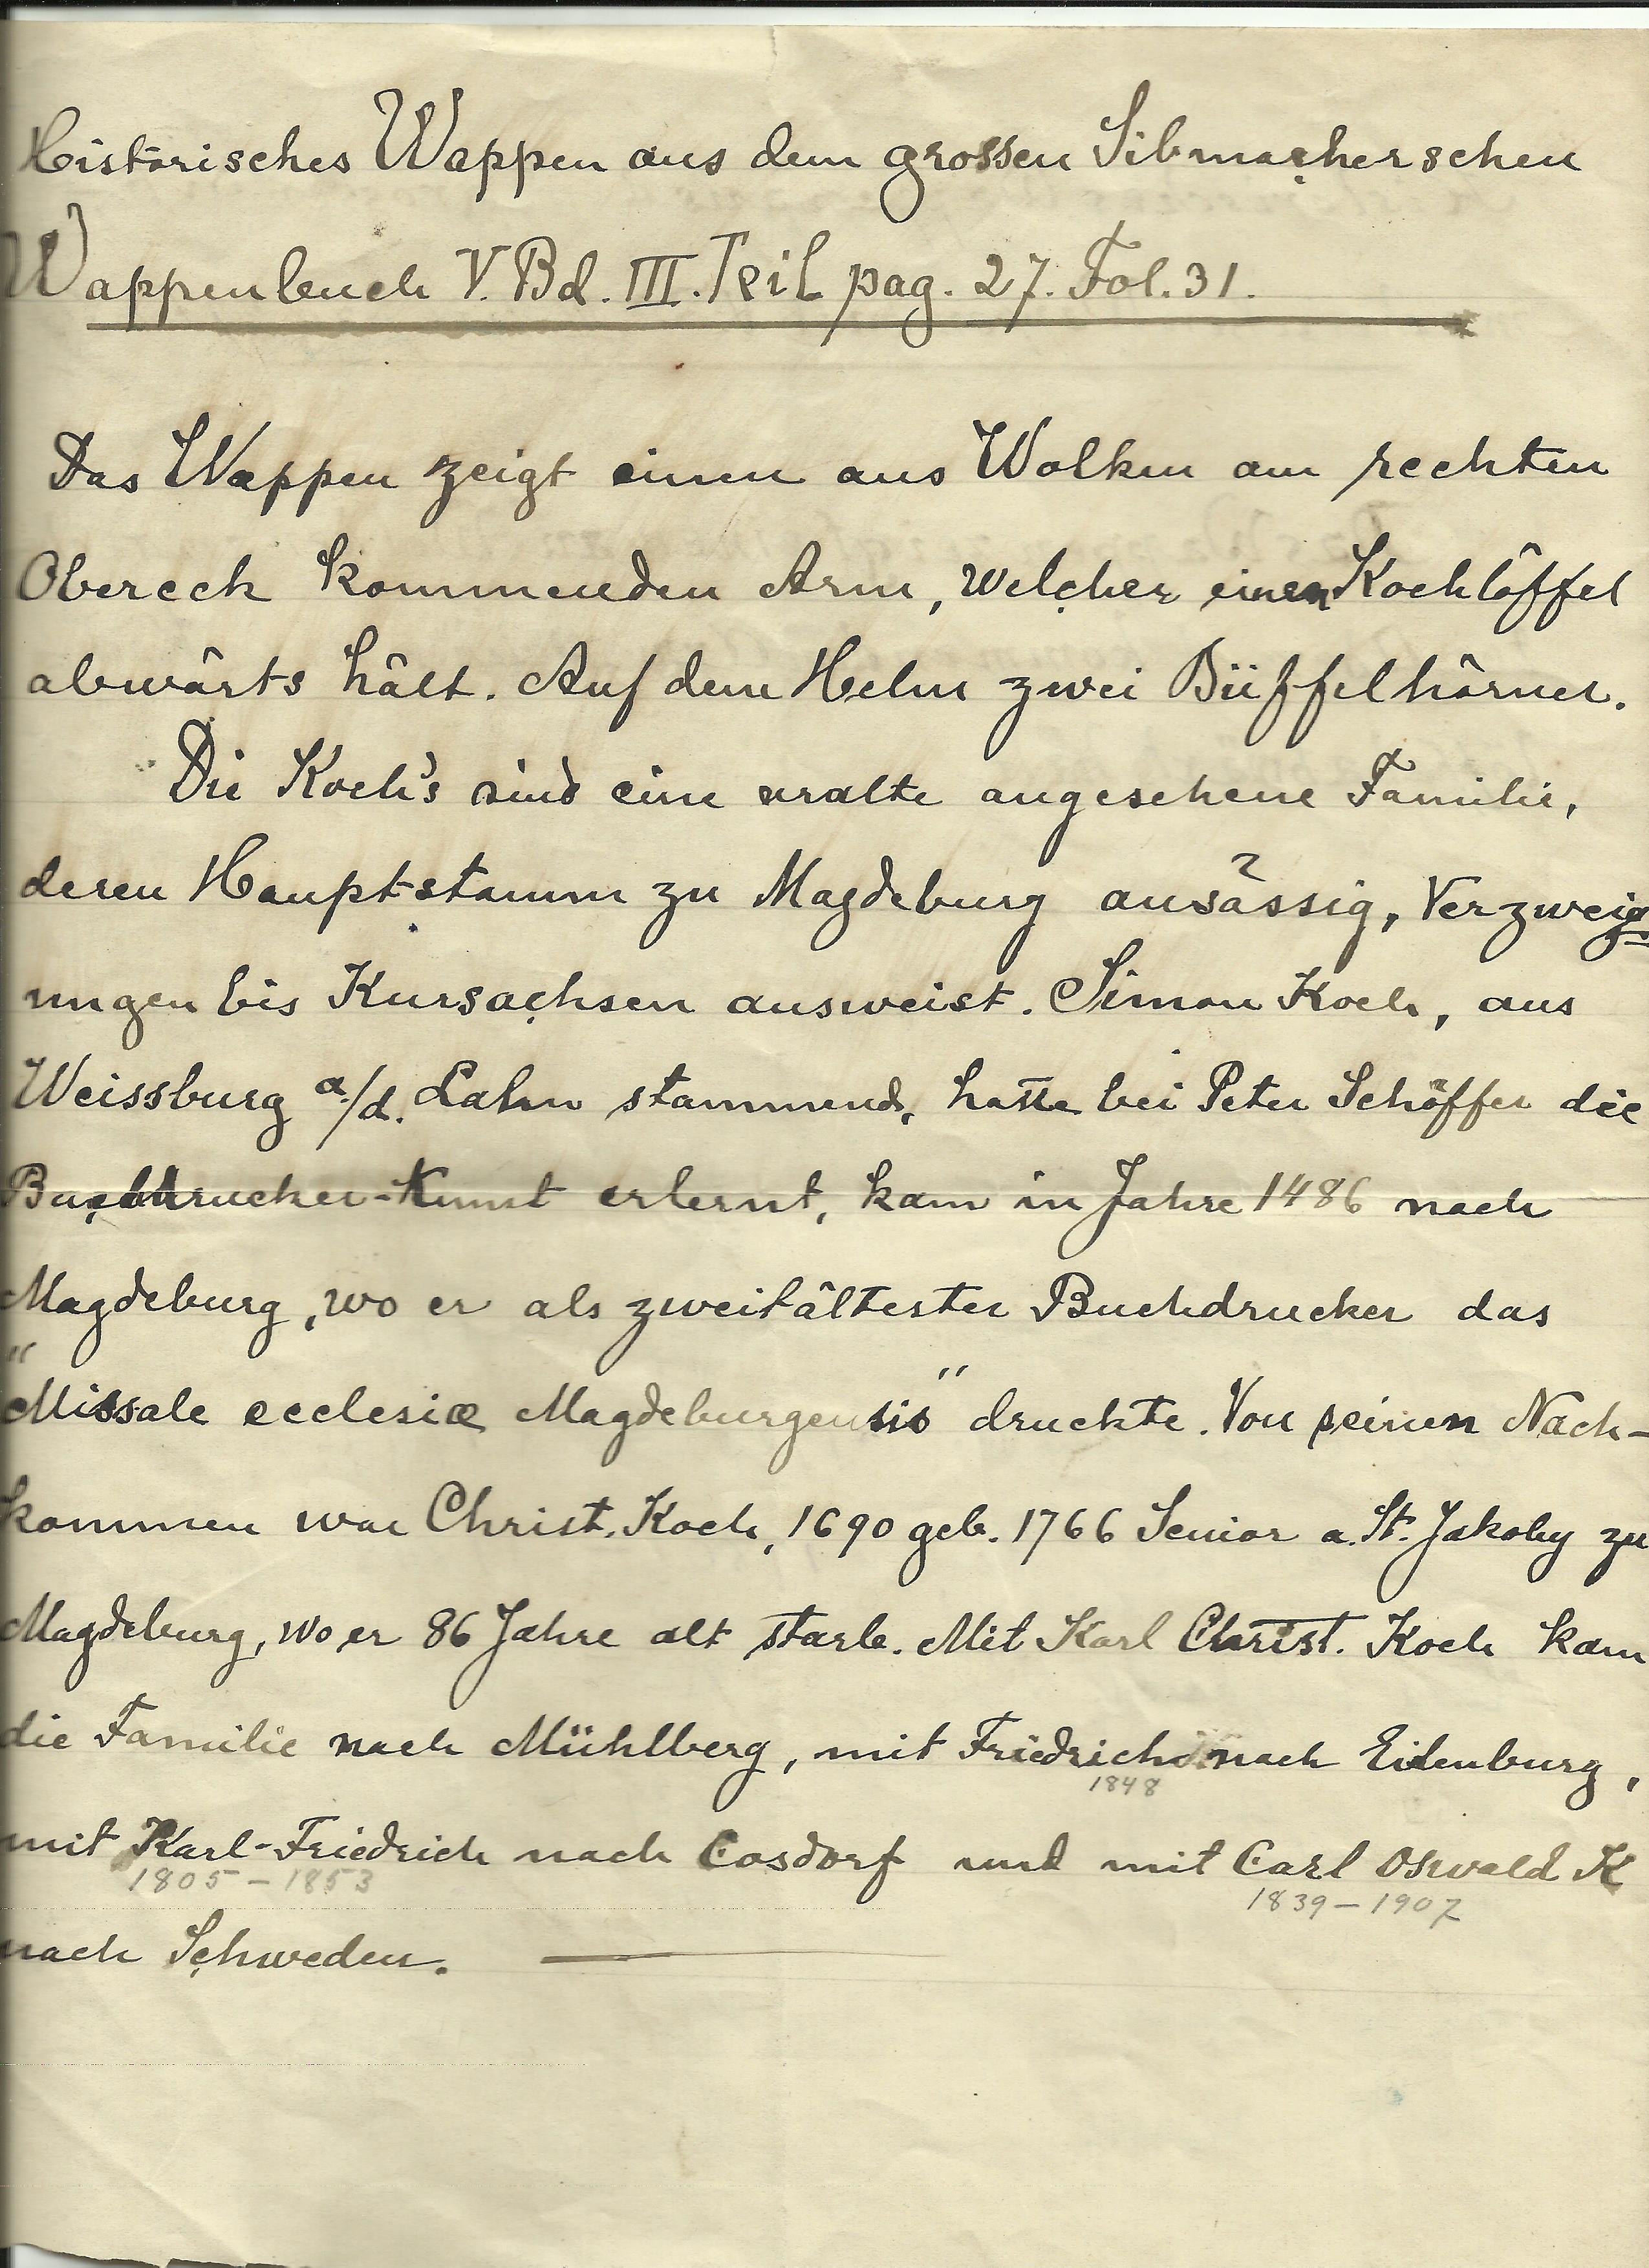 Historisches Wappen aus dem grossen Sibmacherschen
Wappenbuch V. Bd. III. Teil pag. 27. Fol. 31.
Das Wappen zeigt einen aus Wolken am rechten
Obereck kommenden Arm, welcher einen Kochlöffel
abwärts hält. Auf dem Helm zwei Büffelhörner.
Die Koch's sind eine uralte angesehene Familie,
deren Hauptstamm zu Magdeburg ansässig, Verzweig=
ungen bis Kursachsen ausweist. Simon Koch, aus
Weissburg a./d. Lahn stammend, hatte bei Peter Schöffer die
Buchdrucker-Kunst erlernt, kam in Jahre 1486 nach
Magdeburg, wo er als zweitältester Buchdrucker das
"Missale ecclesiæ Magdeburgensis" druckte. Von seinen Nach-
kommen war Christ. Koch, 1690 geb. 1766 Senior a. St. Jakoby zu
Magdeburg, wo er 86 Jahre alt starb. Mit Karl Christ. Koch kam
die Familie nach Mühlberg, mit Friedrich nach Eilenburg,
1848
mit Karl-Friedrich nach Cosdorf und mit Carl Oswald K
1805 - 1853
1839 - 1907
nach Schweden.